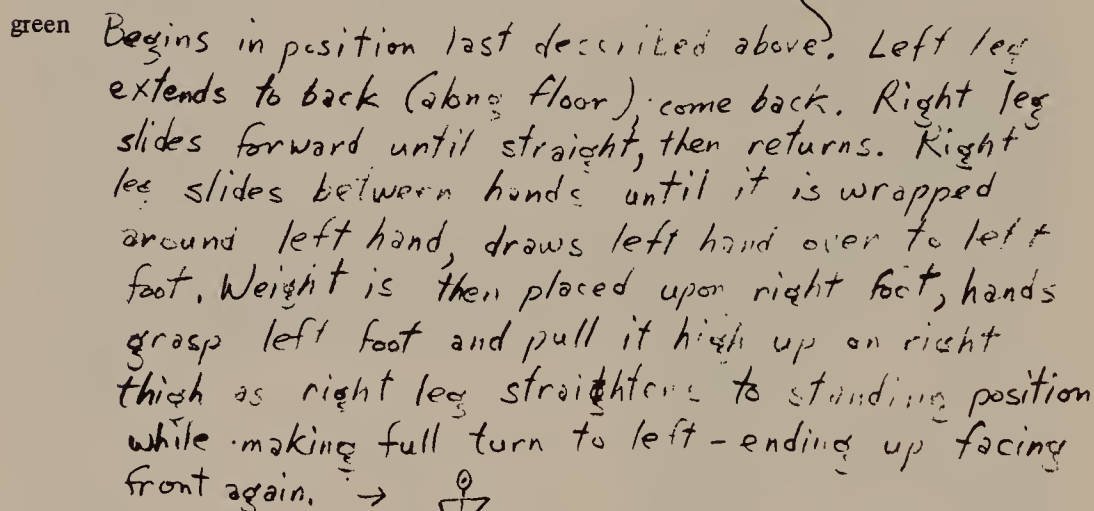 green Begins in position last described above. Left leg
extends to back (along floor), come back. Right leg
slides forward until straight, then returns. Right
leg slides between hands until it is wrapped
around left hand, draws left hand over to left
foot. Weight is then placed upon right foot, hands
grasp left foot and pull it high up on right
thigh as right leg straightens to standing position
while making full turn to left - ending up facing
front again. →